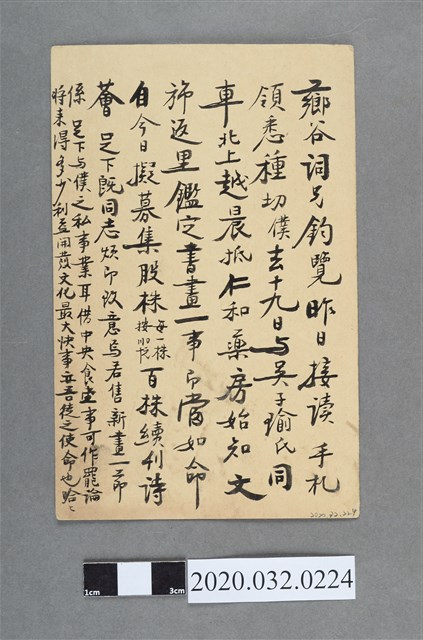 薌谷詞兄鈞覽昨日接讀 手札
領悉種切僕去十九日与吳子瑜氏同
車北上越晨抵仁和藥房始知 文
旆返里鑑定書畫一事即當如命
自今日擬募集股株每一株 百株續刊詩
薈 足下既同志煩即致意焉若售新畫一節
係 足下与僕之私事業耳借中央食堂事可作罷論
將來得多少利益開發文化最大快事亦吾徒之使命也
2020.032.0224
1cm 3cm
2020.032.0224